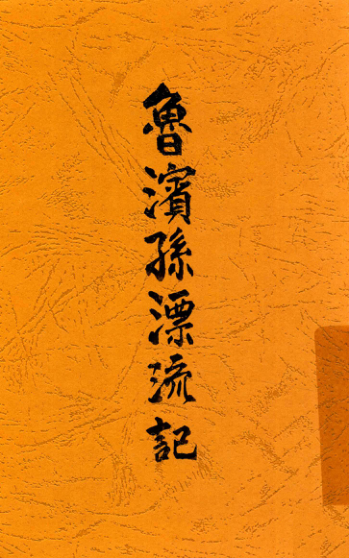 魯濱孫漂流記